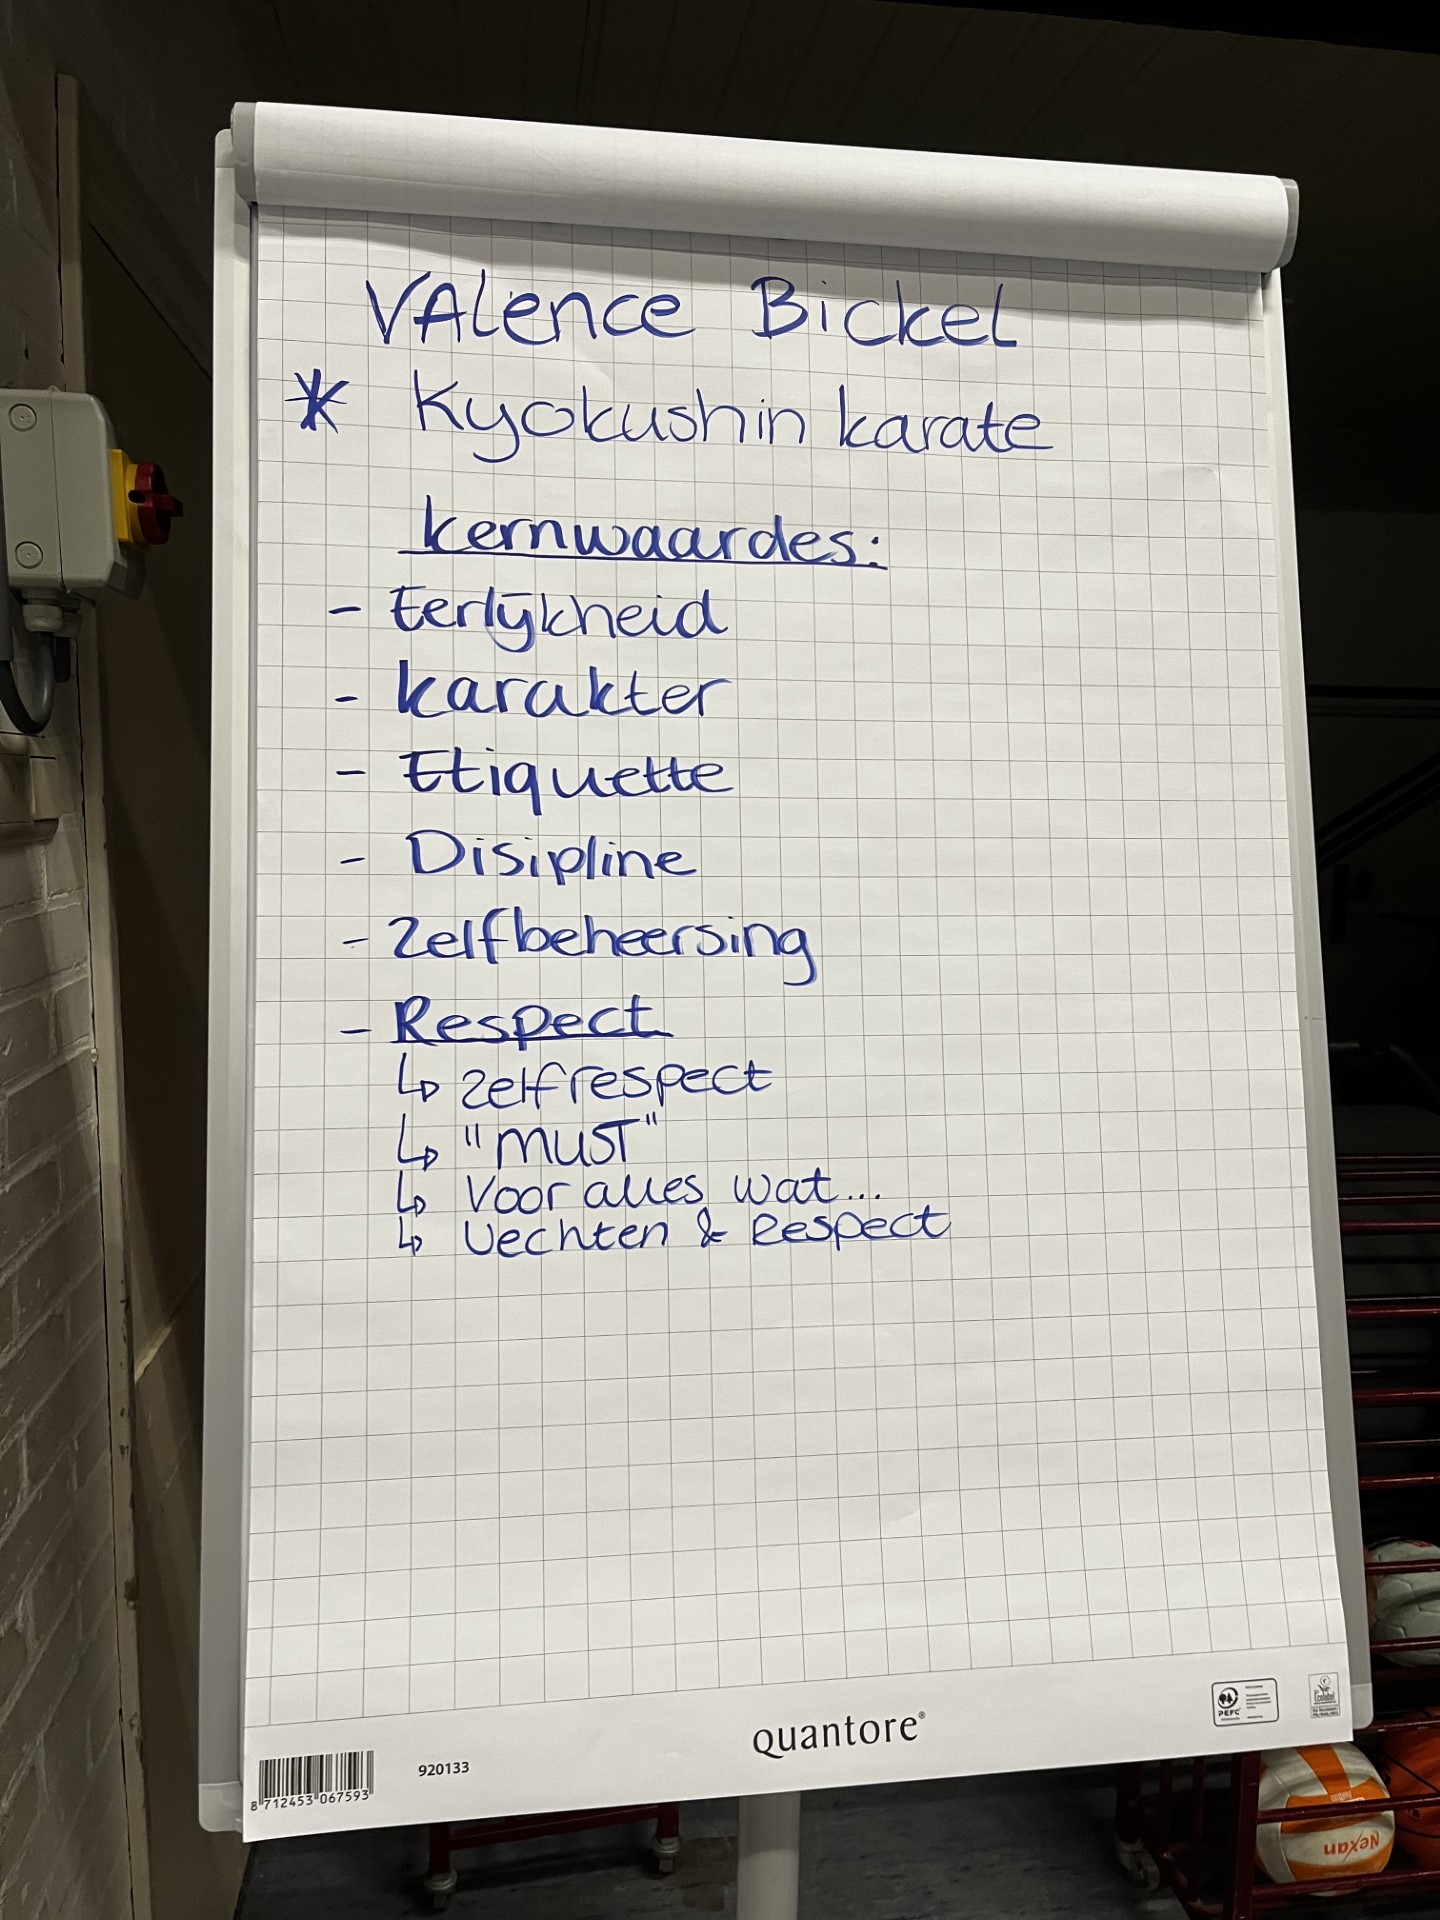 VAlence Bickel
* Kyokushin karate
kernwaardes:
- Eerlijkheid
- karakter
- Etiquette
- Disipline
- Zelfbeheersing
- Respect
↳ zelfrespect
↳ "MUST"
↳ Voor alles wat...
↳ Vechten & Respect
quantore®
920133
8 712453 067593
PEFC
Ecolabel
Nexan